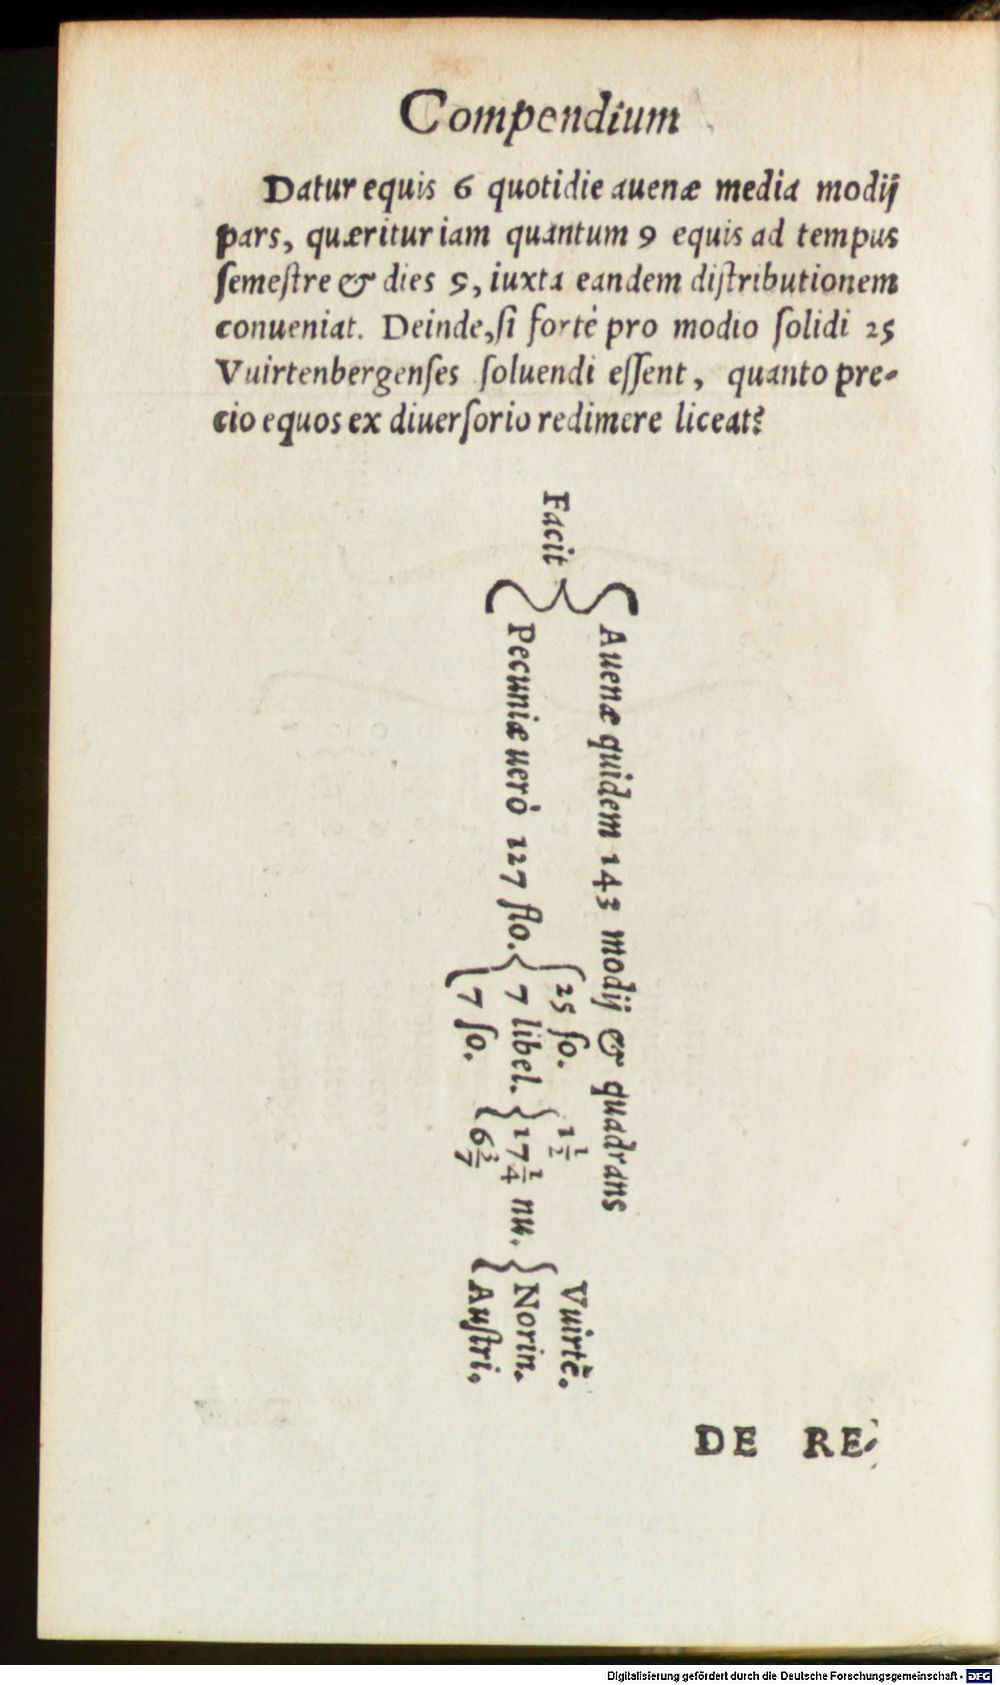 Compendium
Datur equis 6 quotidie auenæ media modij
pars, quæritur iam quantum 9 equis ad tempus
ſemeſtre & dies 5, iuxta eandem diſtributionem
conueniat. Deinde, ſi fortè pro modio ſolidi 25
Vuirtenbergenſes ſoluendi eſſent, quanto pre-
cio equos ex diuerſorio redimere liceat?
Facit
Auenæ quidem 143 modij & quadrans
Pecuniæ uerò 127 flo.
25 ſo. 1 1/2 Vuirtē.
7 libel. 17 1/4 nu. Norin.
7 ſo. 6 3/7 Auſtri.
DE RE-
Digitalisierung gefördert durch die Deutsche Forschungsgemeinschaft - DFG